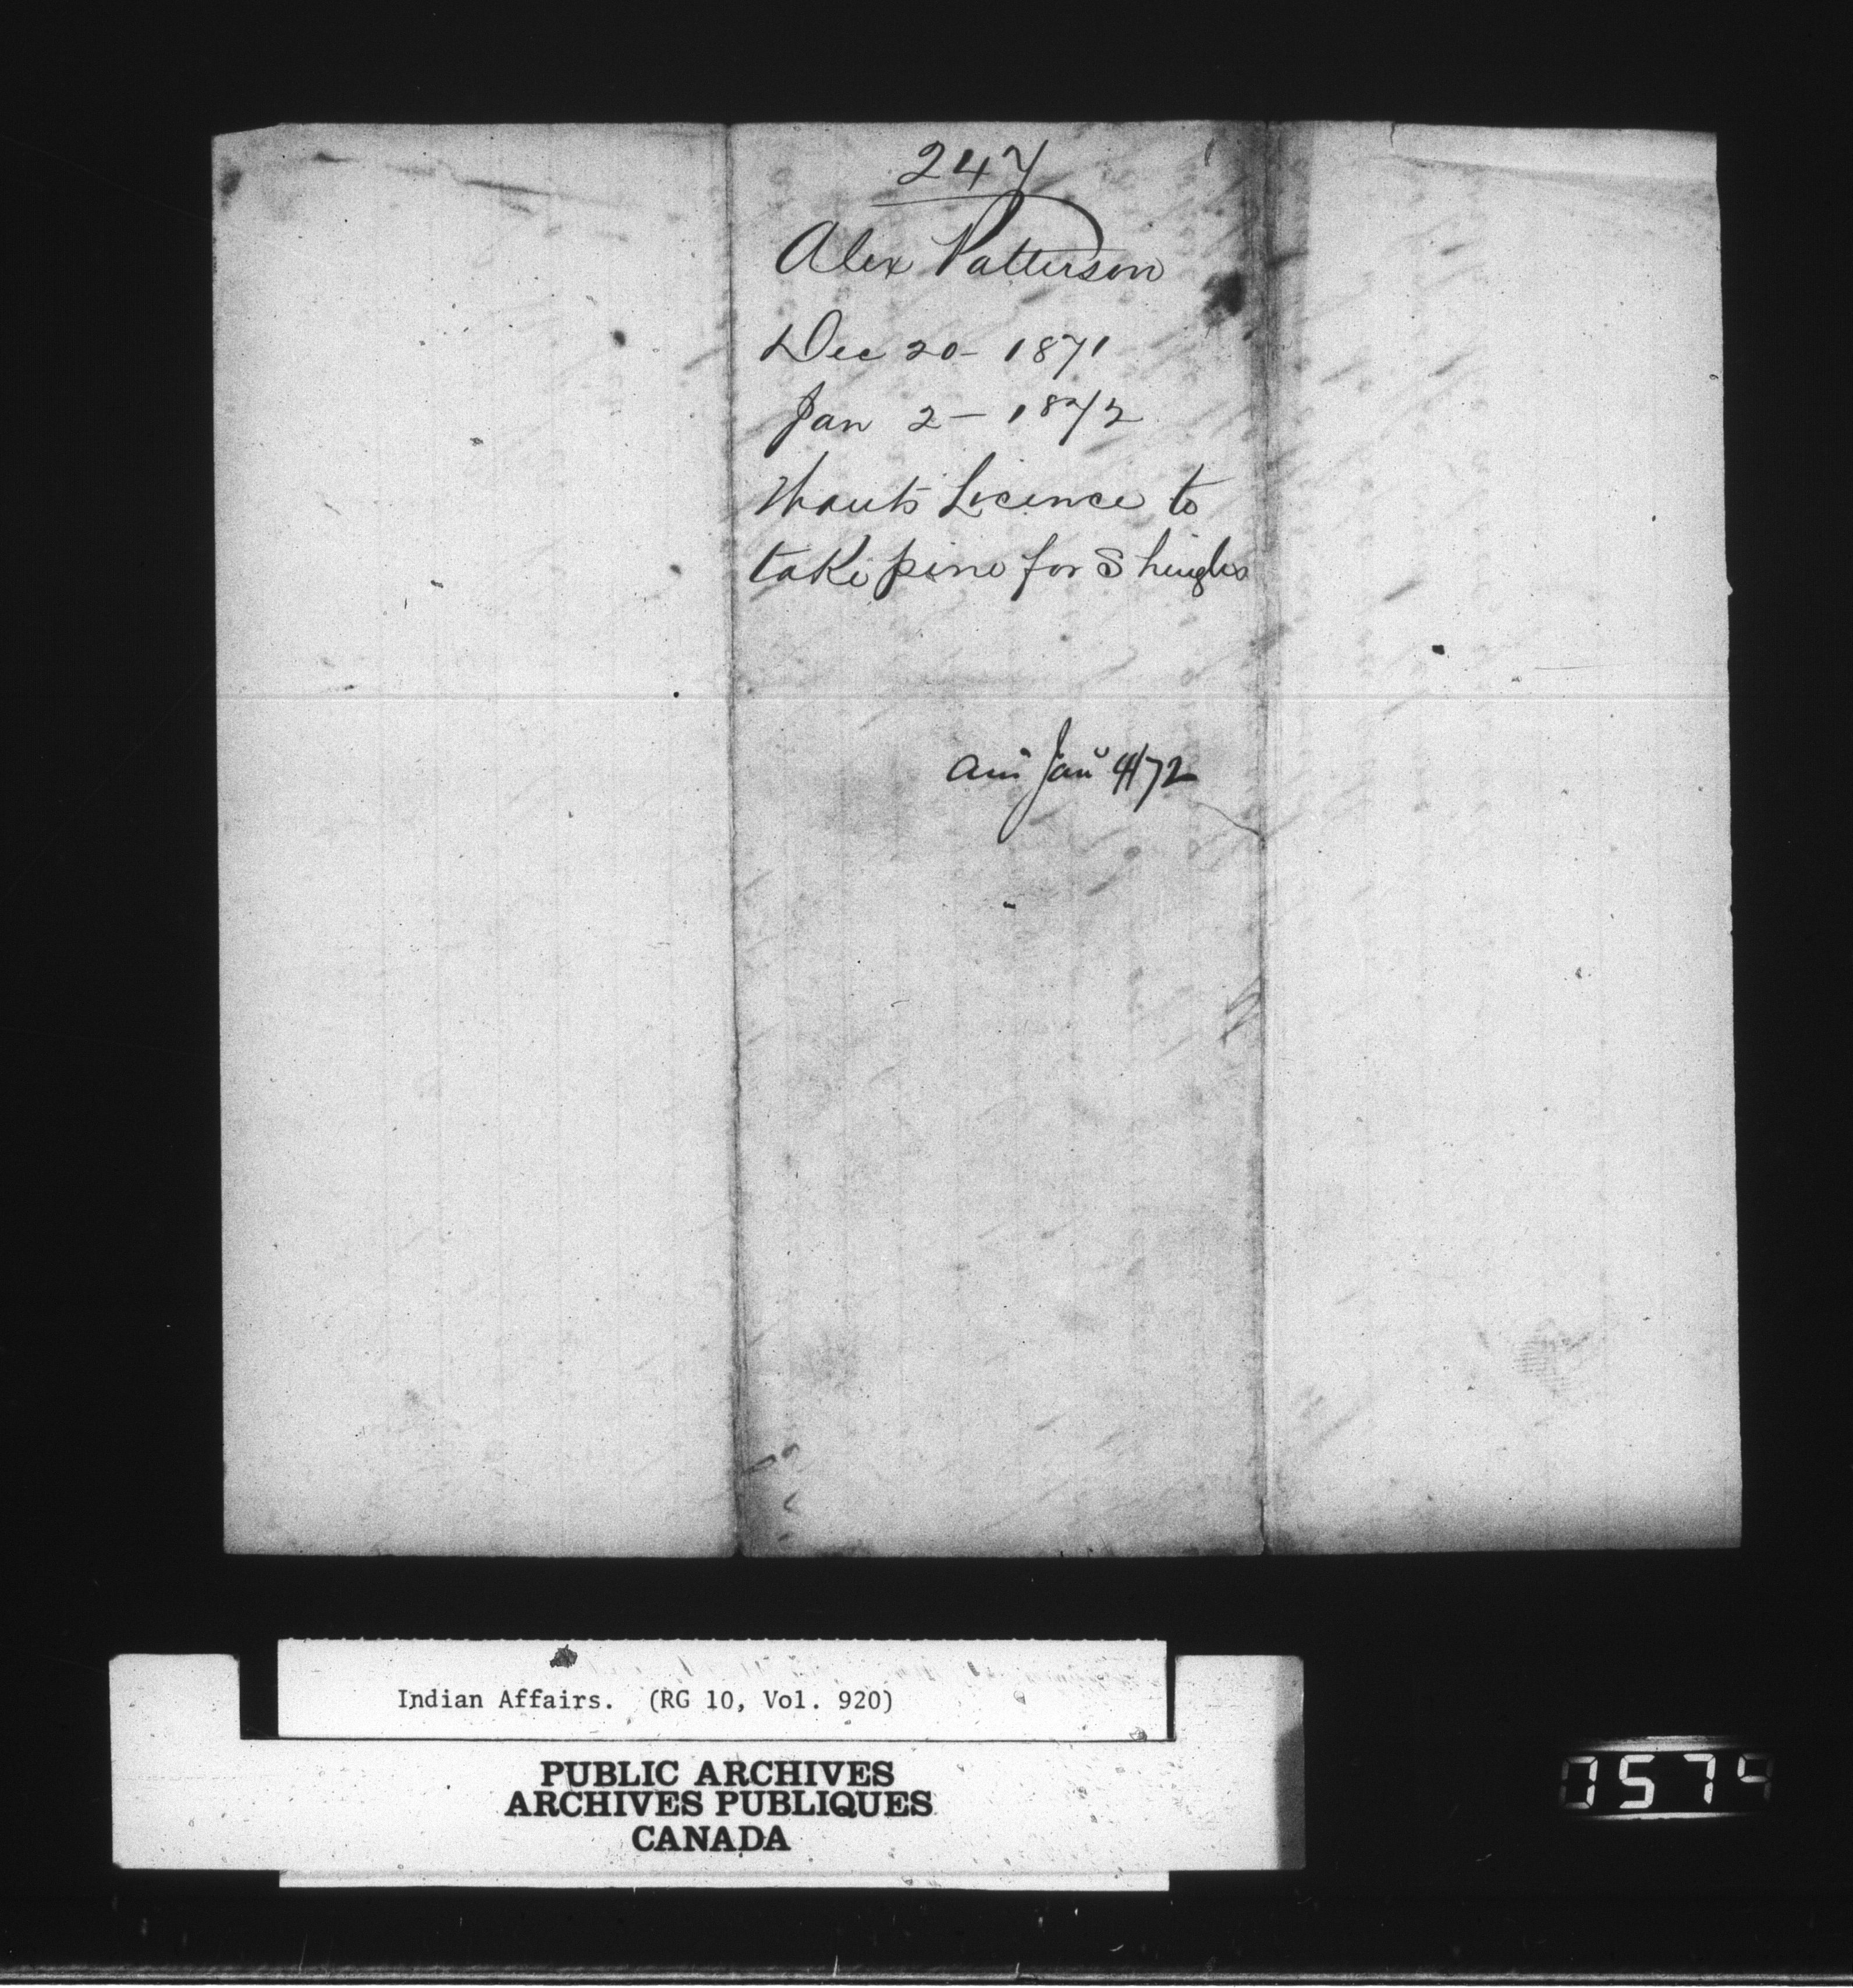 247
Alex Patterson
Dec 20 - 1871
Jan 2 - 1872
Wants Licence to
take pine for Shingles
Jany 4/72
Indian Affairs. (RG 10, Vol. 920)
PUBLIC ARCHIVES
ARCHIVES PUBLIQUES
CANADA
0574